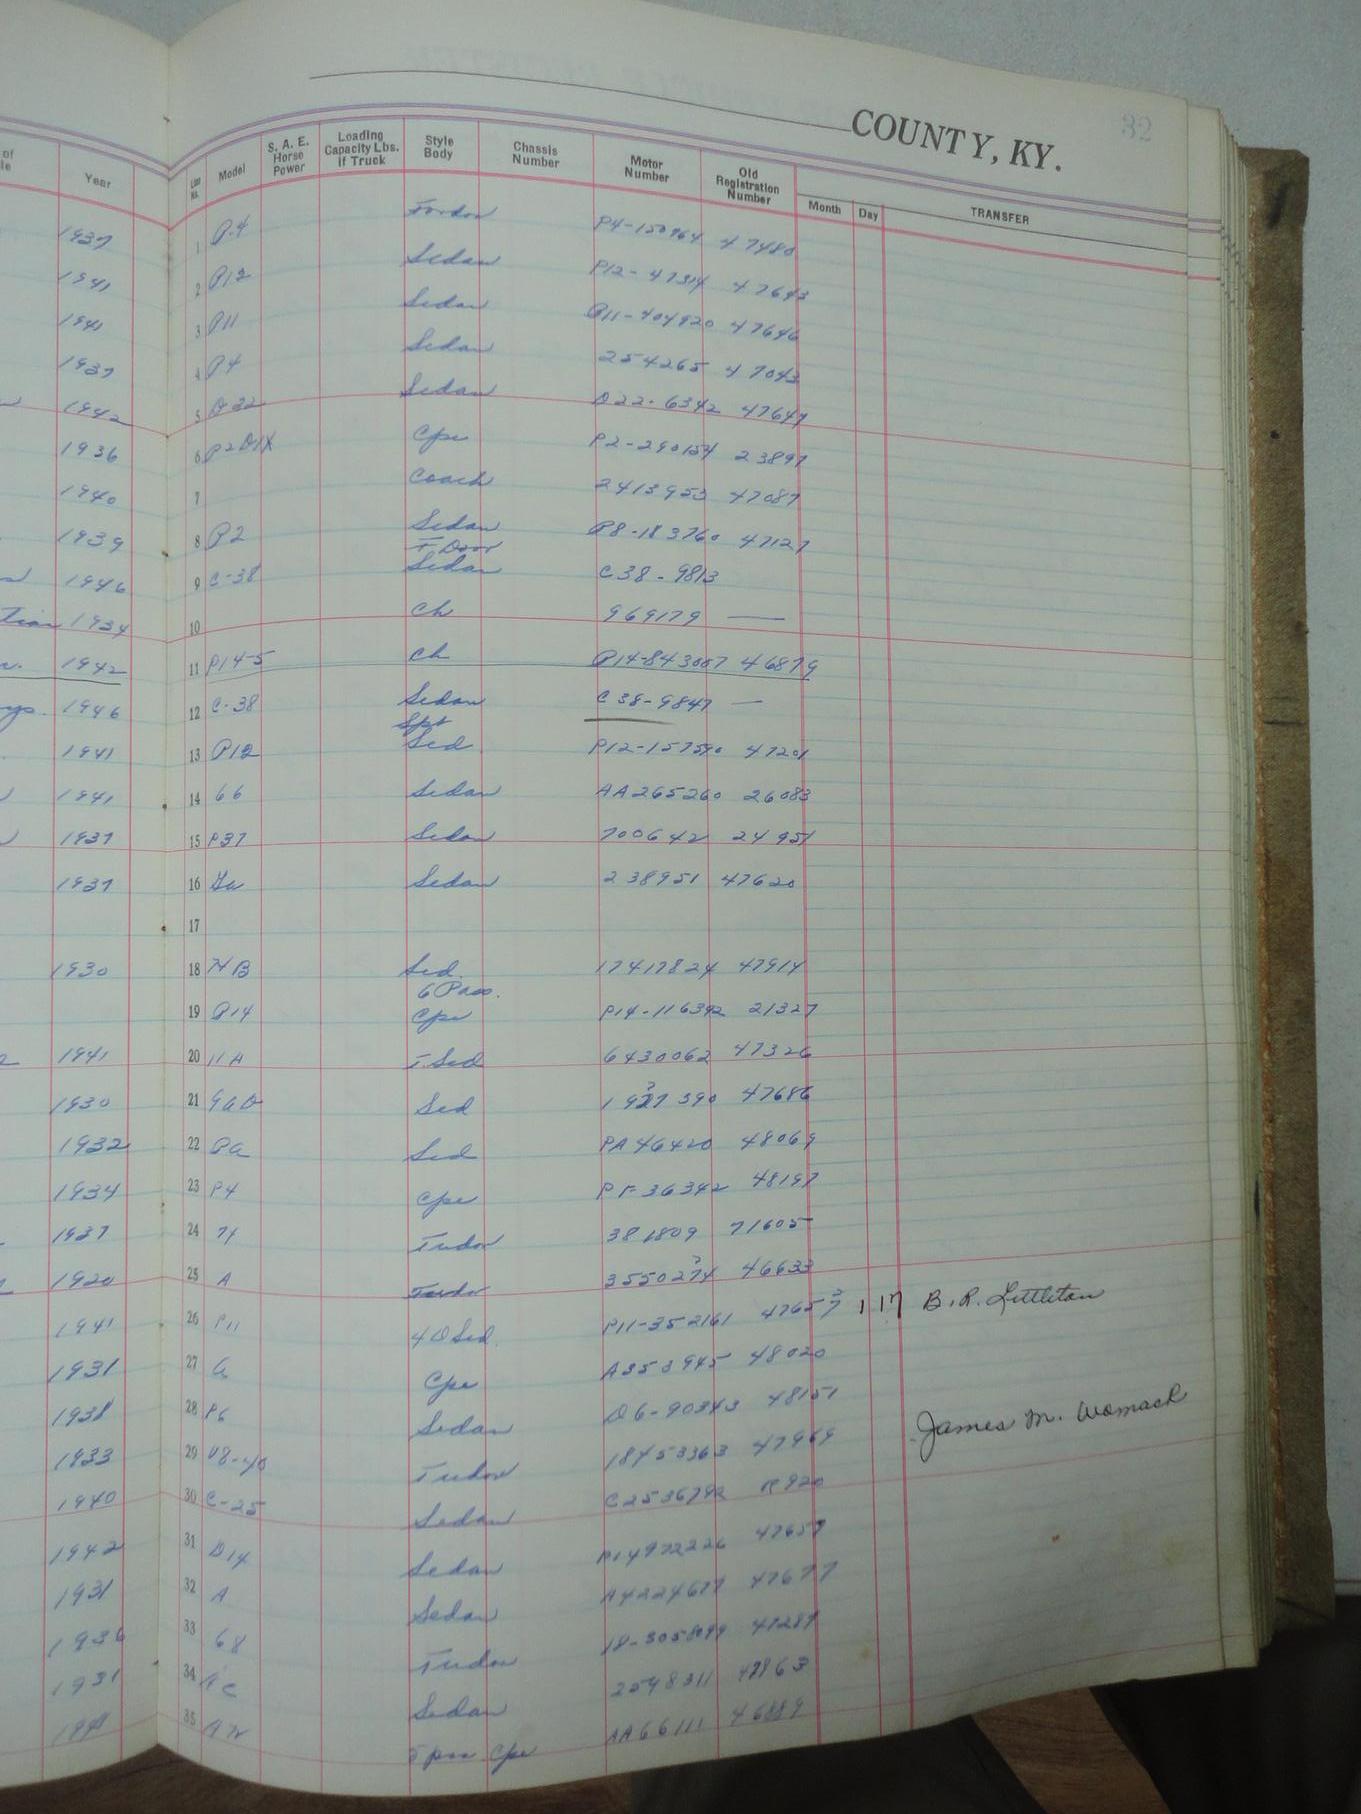 32
COUNTY, KY.
Year Line No. Model S. A. E. Horse Power Loading Capacity Lbs. if Truck Style Body Chassis Number Motor Number Old Registration Number Month Day TRANSFER
1937 1 P.4 Fordor P4-150964 47480
1941 2 P12 Sedan P12-47314 47643
1941 3 P11 Sedan P11-404920 47646
1937 4 P4 Sedan 254265 47043
1942 5 D-22 Sedan D22-6342 47647
1936 6 P2 Cpe P2-290154 23897
1940 7 Coach 2413953 47087
1939 8 P2 Sedan P8-183760 47127
F Door
1946 9 C-38 Sedan C38-9813
1934 10 Ch 969179 —
1942 11 P14-5 Ch P14-843007 46879
1946 12 C-38 Sedan C38-9847 —
Spt
1941 13 P12 Sed P12-157590 47201
1941 14 66 Sedan AA265260 26083
1937 15 P37 Sedan 700642 24951
1937 16 Ga Sedan 238951 47620
17
1930 18 Sed. 17417824 47914
6 Pass.
19 P14 Cpe P14-116392 21327
1941 20 11A T.Sed 6430062 47326
1930 21 Sed 47686
1932 22 PA Sed PA46420 48069
1934 23 P4 Cpe PF36342 48197
1937 24 74 Tudor 381809 71605
1920 25 A Tudor 46633
1941 26 P11 4 D Sed. P11-352161 1 17 B. R. Littleton
1931 27 A Cpe A353945 48020
1938 28 P6 Sedan D6-90343 48151
James M. Womack
1933 29 V8-40 Tudor 18453363 47969
1940 30 C-25 Sedan C2536792 R920
1942 31 D14 Sedan P14972226 47657
1931 32 A Sedan A4224677 47677
1936 33 68 Tudor 18-3058099 47287
1931 34 Sedan 2598311 47863
1941 35 5 pass Cpe AA66111 46889